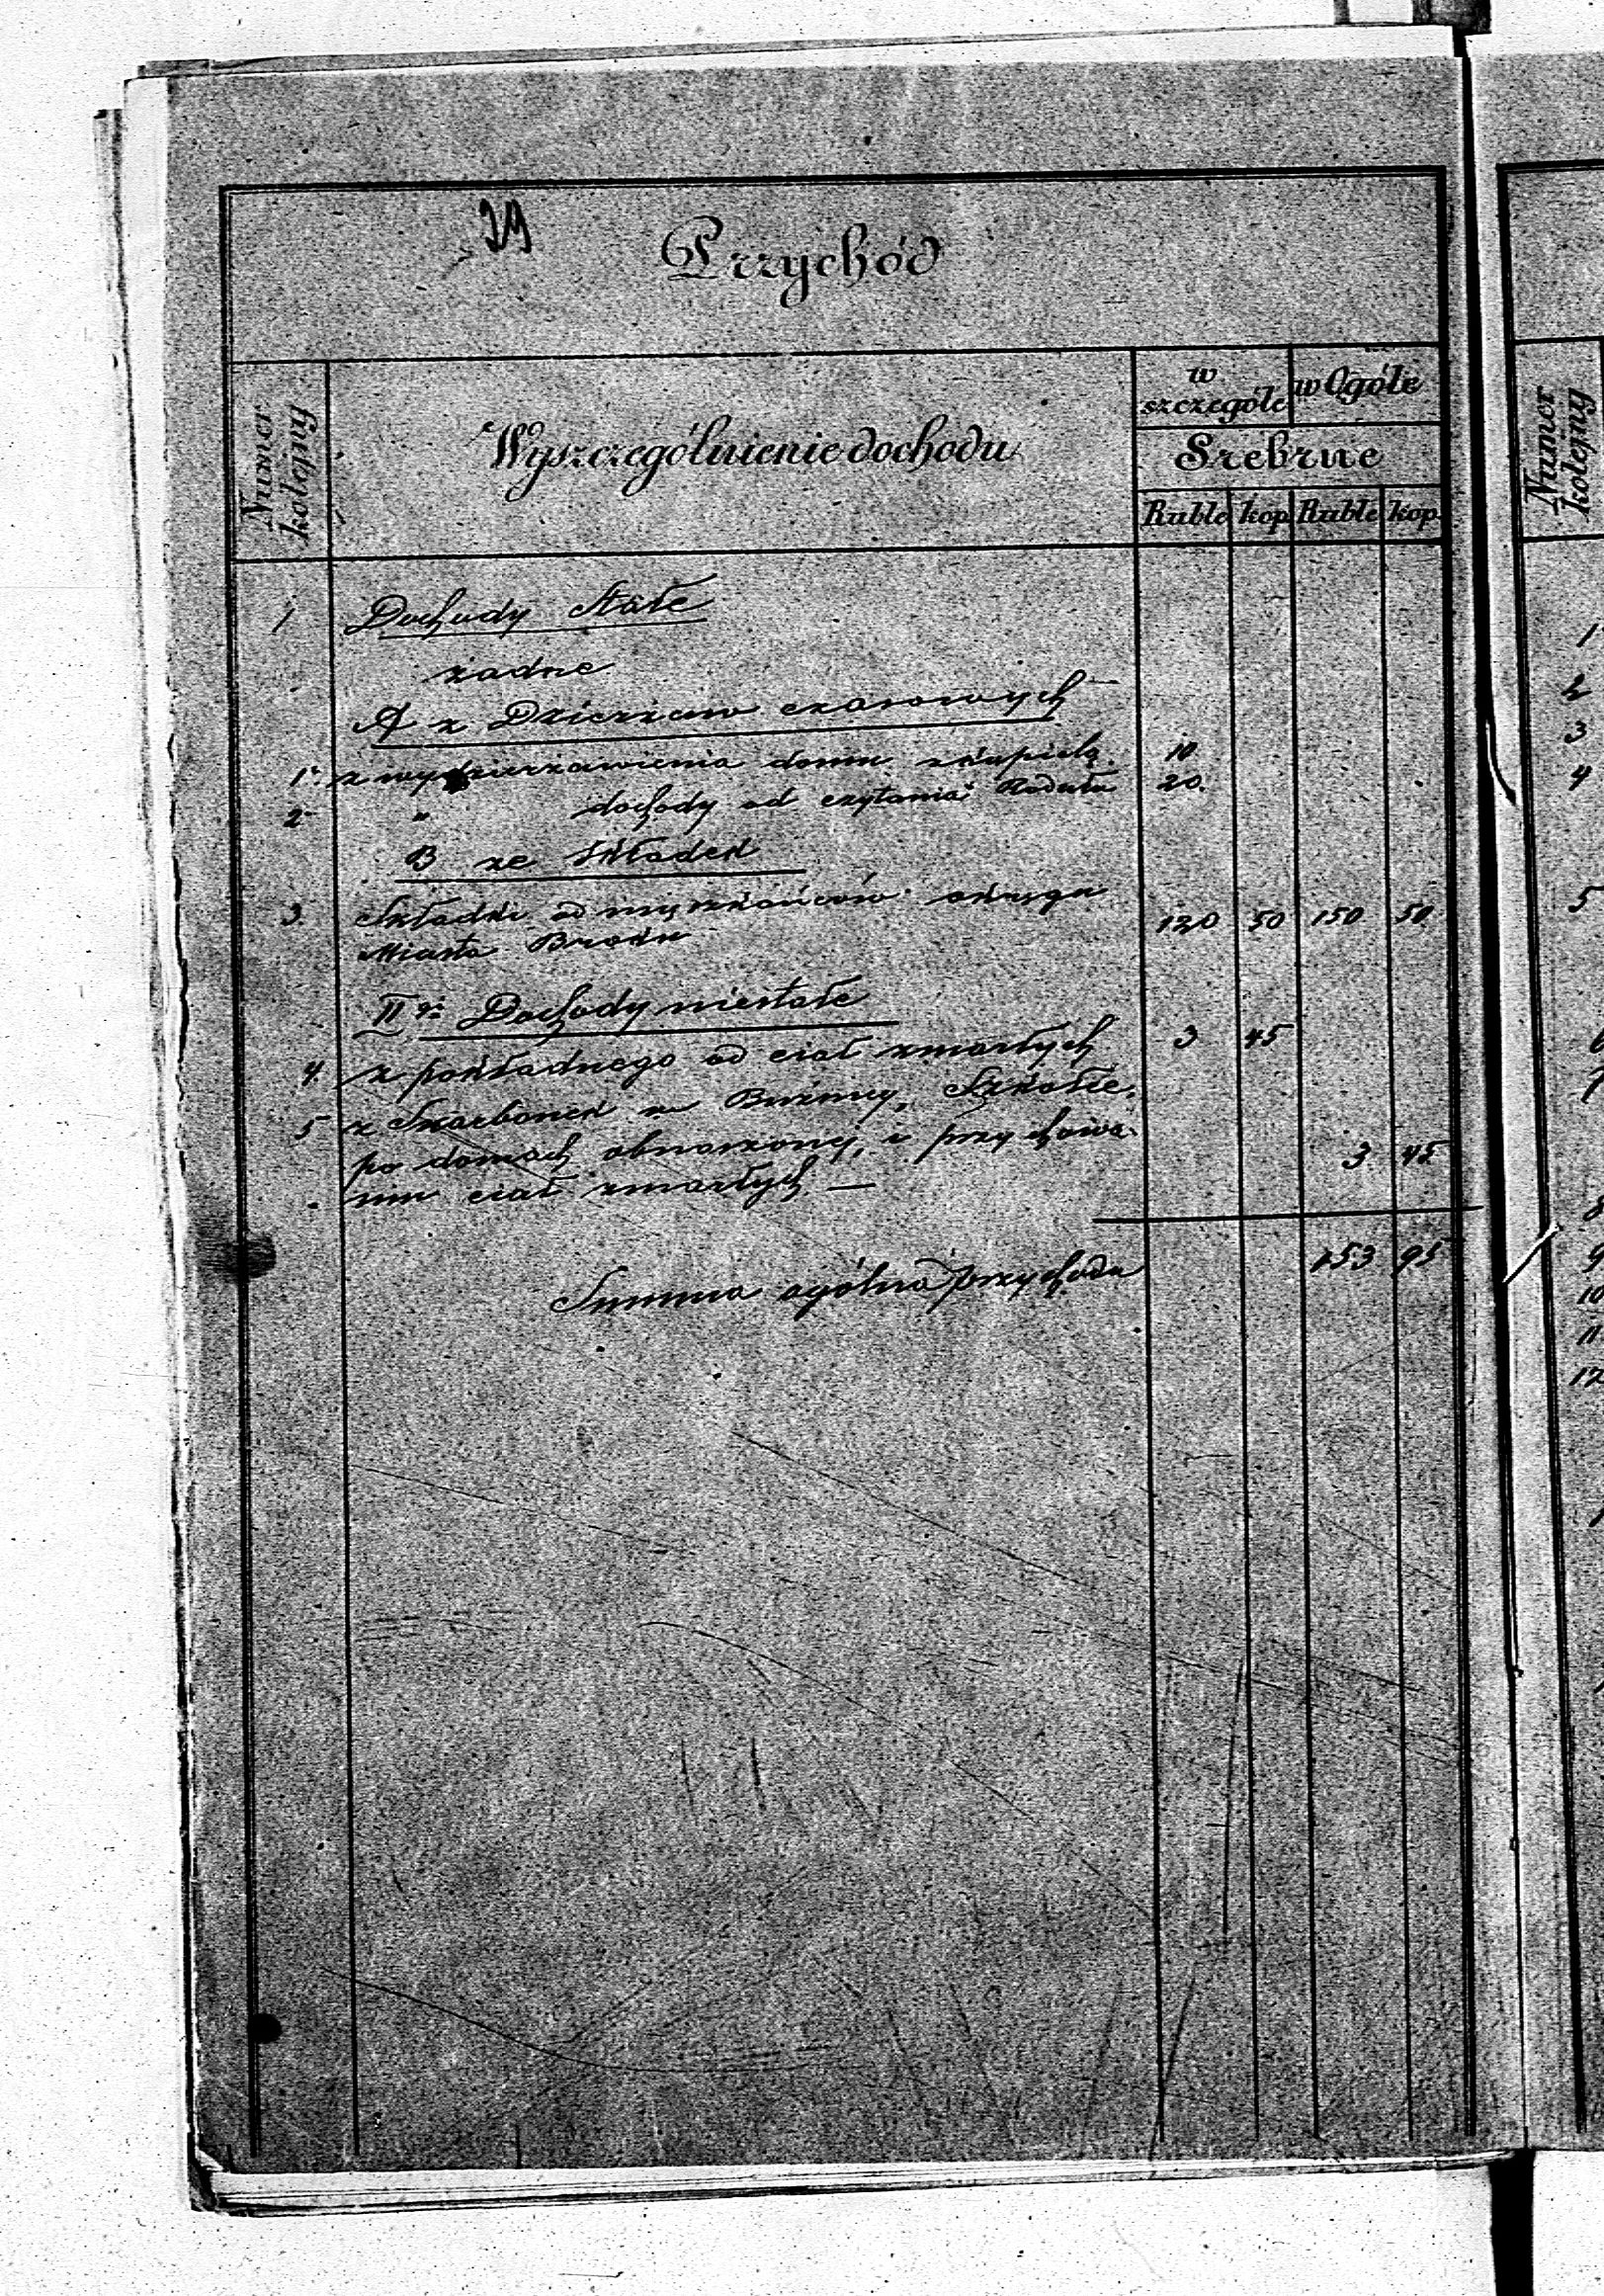 29
Przychód
Numer kolejny
Wyszczególnienie dochodu
w szczególe
w Ogóle
Srebrne
Ruble kop Ruble kop
1 Dochody Stałe
żadne
A z Dzierżaw czasowych
1. z wydzierżawienia domu z kąpielą. 10
2 " dochody od czytania Rodału 20.
B ze składek
3. Składki od mieszkańców okręgu
Miasta Broku 120 50 150 50
II Dochody niestałe
4. z pokładnego od ciał zmarłych 3 45
5 z Skarbonek w Bużnicy, Szkole,
po domach obnoszonej, i przy chowa-
niu ciał zmarłych — 3 45
Summa ogólna przychodu 153 95
Numer kolejny
1
2
3
4
5
6
7
8
9
10
11
12